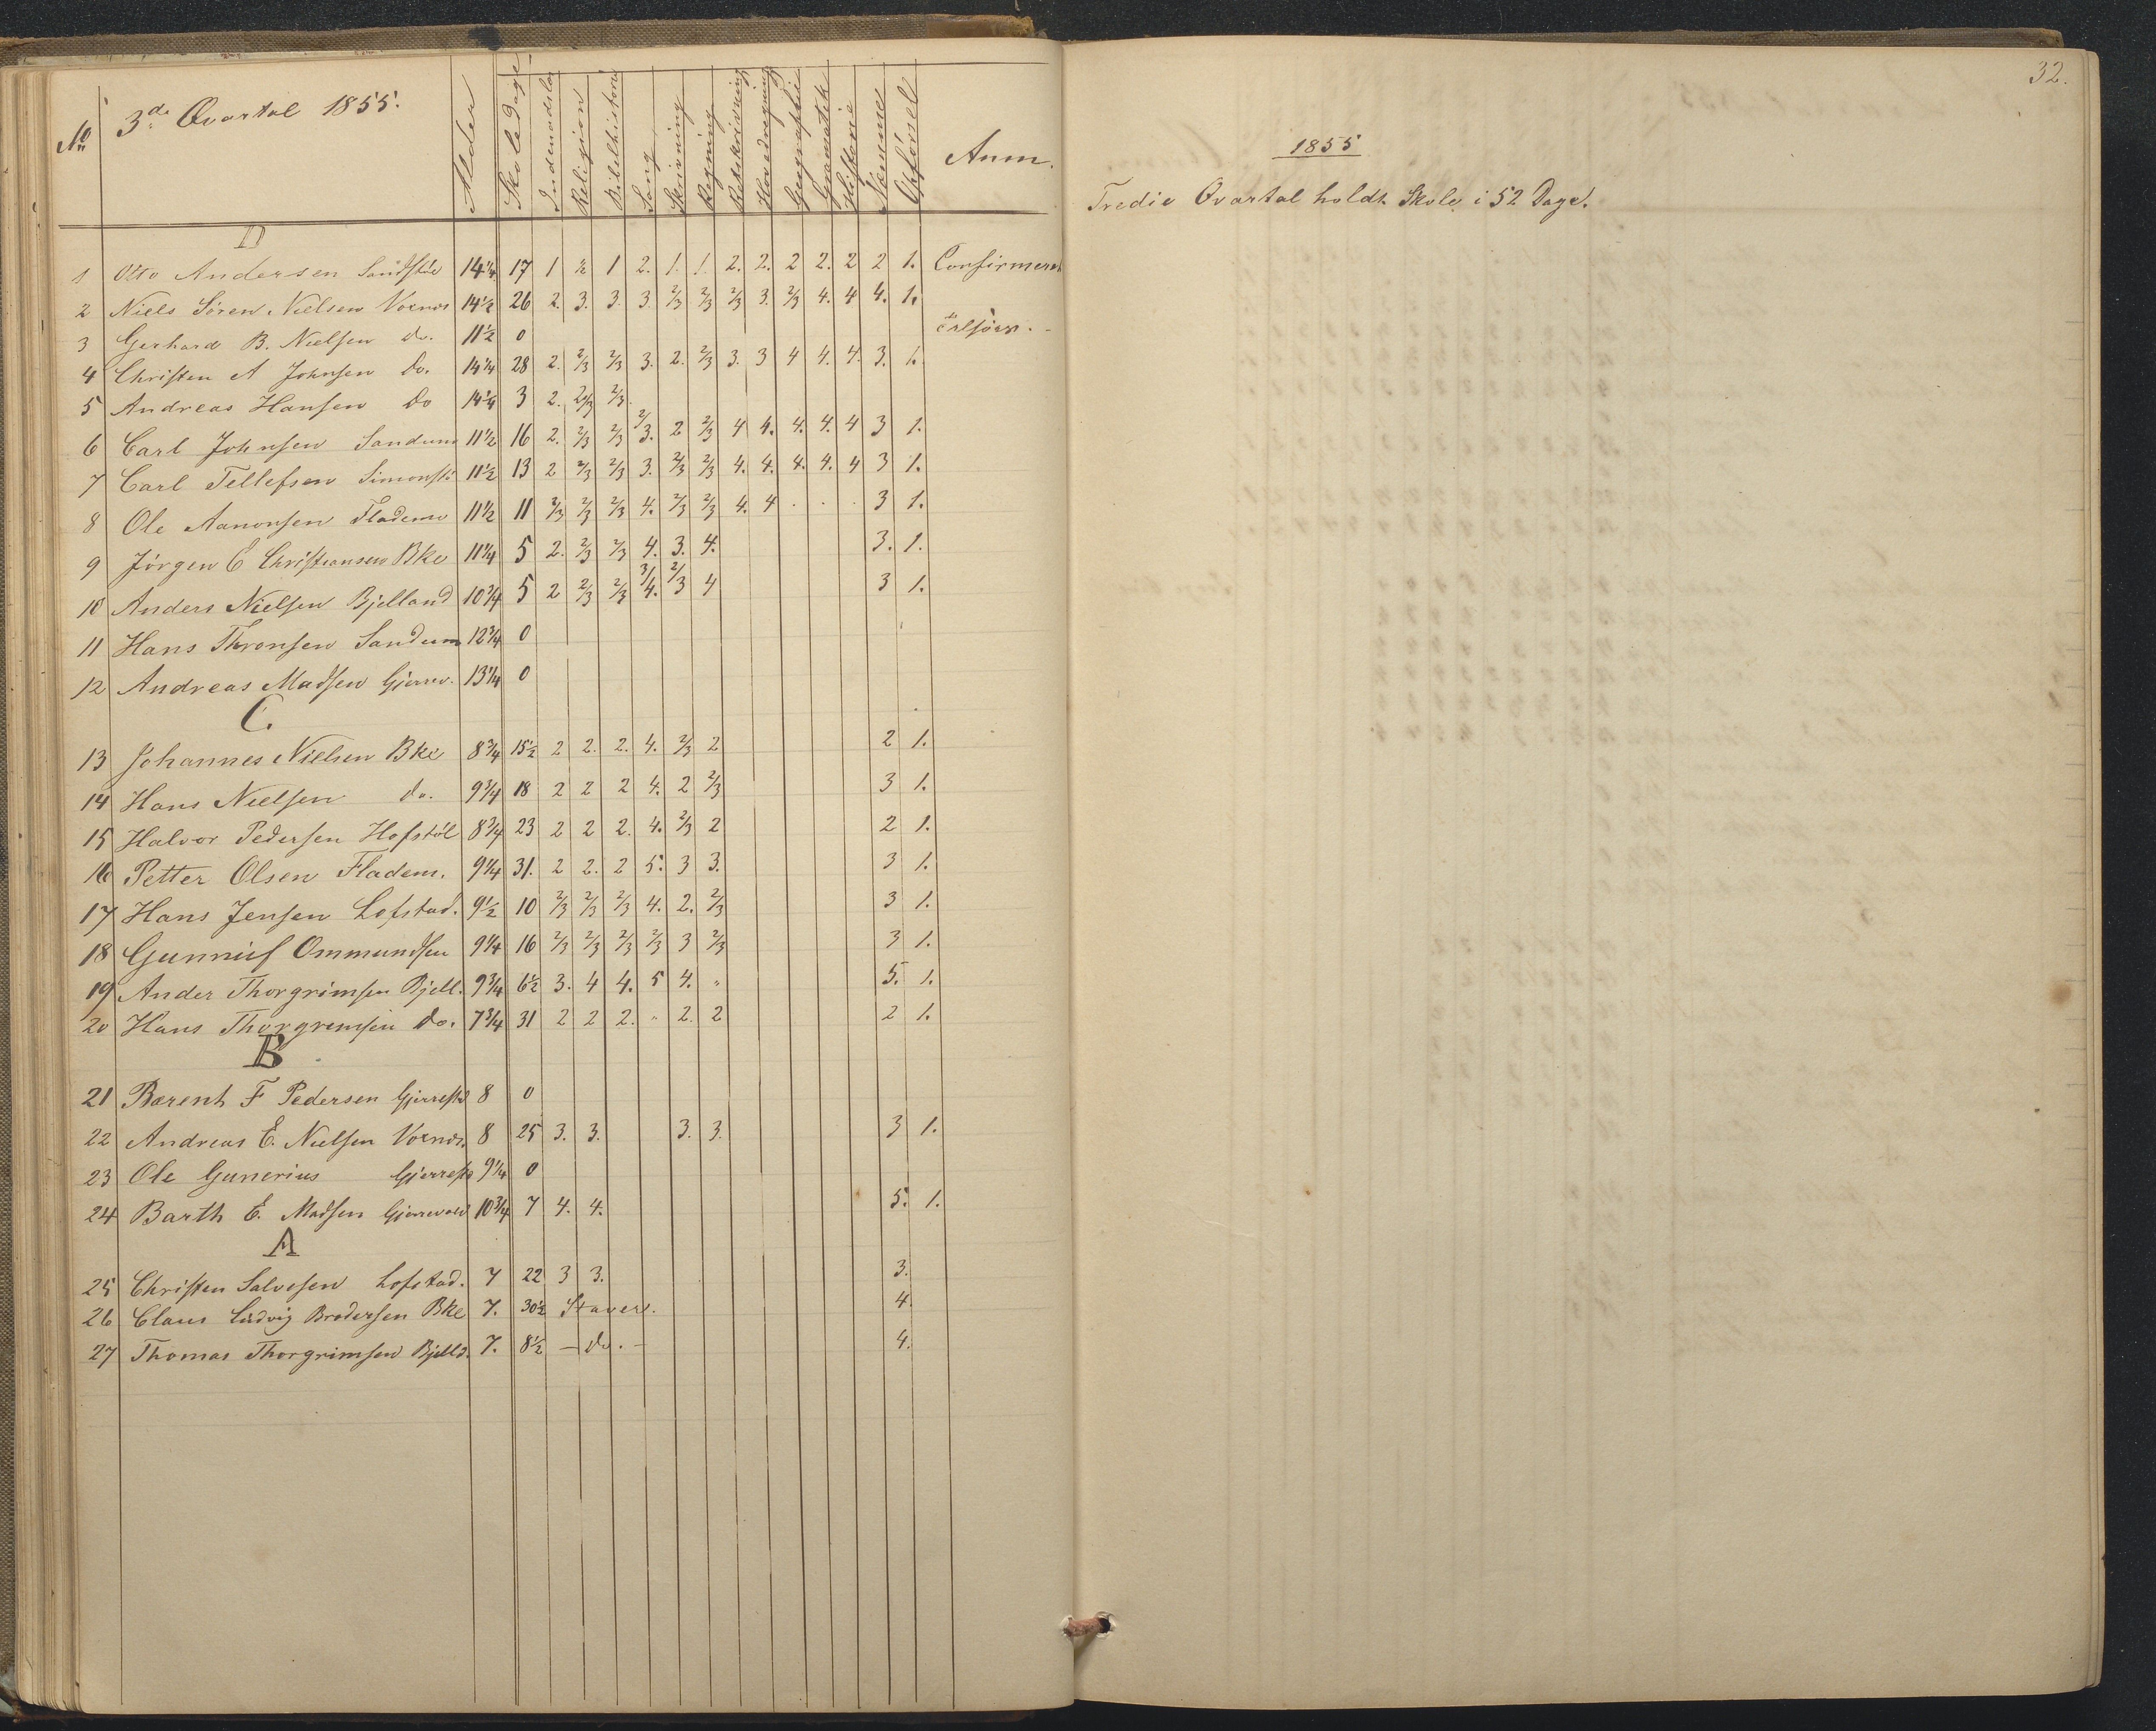 No 3de Qvartal 1855. Alder Skoledage Indenadslæs Religion Bibelhistorie Sang Skrivning Regning Retskrivning Hovedregning Geographie Gramatik Historie Nemme Opførsel Anm.
D
1 Otto Andersen 14 1/4 17 1 1/2 1 2. 1. 1. 2. 2. 2 2. 2 2 1. Confirmeret
2 Niels Søren Nielsen 14 1/2 26 2. 3. 3. 3. 2/3 2/3 2/3 3. 2/3 4. 4 4. 1.
3 Gerhard B. Nielsen do. 11 1/2 0
4 Christen A Johnsen do. 14 1/4 28 2. 2/3 2/3 3. 2. 2/3 3. 3 4 4. 4. 3. 1.
5 Andreas Hansen do 14 1/4 3 2. 2/3 2/3.
6 Carl Johnsen Sandum 11 1/2 16 2. 2/3 2/3 2/3. 2 2/3 4 4. 4. 4. 4 3 1.
7 Carl Tellefsen 11 1/2 13 2 2/3 2/3 3. 2/3 2/3 4. 4. 4. 4. 4 3 1.
8 Ole Aanonsen Fladem 11 1/2 11 2/3 2/3 2/3 4. 2/3 2/3 4. 4 . . . 3 1.
9 Jørgen C Christiansen Bke 11 1/4 5 2. 2/3 2/3 4. 3. 4. 3. 1.
10 Anders Nielsen Bjelland 10 3/4 5 2 2/3 2/3 3/4. 2/3 4 3 1.
11 Hans Thronsen Sandum 12 3/4 0
12 Andreas Madsen Gjerrev. 13 1/4 0
C.
13 Johannes Nielsen Bke 8 3/4 15 1/2 2 2. 2. 4. 2/3 2 2 1.
14 Hans Nielsen do. 9 3/4 18 2 2 2 4. 2 2/3 3 1.
15 Halvor Pedersen Hofstøl 8 3/4 23 2 2 2. 4. 2/3 2 2 1.
16 Petter Olsen Fladem. 9 1/4 31. 2 2. 2 5. 3 3. 3 1.
17 Hans Jensen Lofstad. 9 1/2 10 2/3 2/3 2/3 4. 2. 2/3 3 1.
18 Gunnuf Ommundsen 9 1/4 16 2/3 2/3 2/3 2/3 3 2/3 3 1.
19 Ander Thorgrimsen Bjell. 9 3/4 6 1/2 3. 4 4. 5 4. " 5. 1.
20 Hans Thorgrimsen do. 7 3/4 31 2 2 2. " 2. 2 2 1.
B
21 Barent F Pedersen Gjerrestd 8 0
22 Andreas E. Nielsen 8 25 3. 3. 3. 3. 3 1.
23 Ole Gunerius Gjerrestd 9 1/4 0
24 Barth E. Madsen Gjerrevold 10 3/4 7 4. 4. 5. 1.
A
25 Christen Salvesen Lofstad. 7 22 3 3. 3.
26 Claus Ludvig Brodersen Bke 7. 30 1/2 Staver. 4.
27 Thomas Thorgrimsen Bjelld. 7. 8 1/2 – do. – 4.
32.
1855
Tredie Qvartal holdt Skole i 52 Dage.